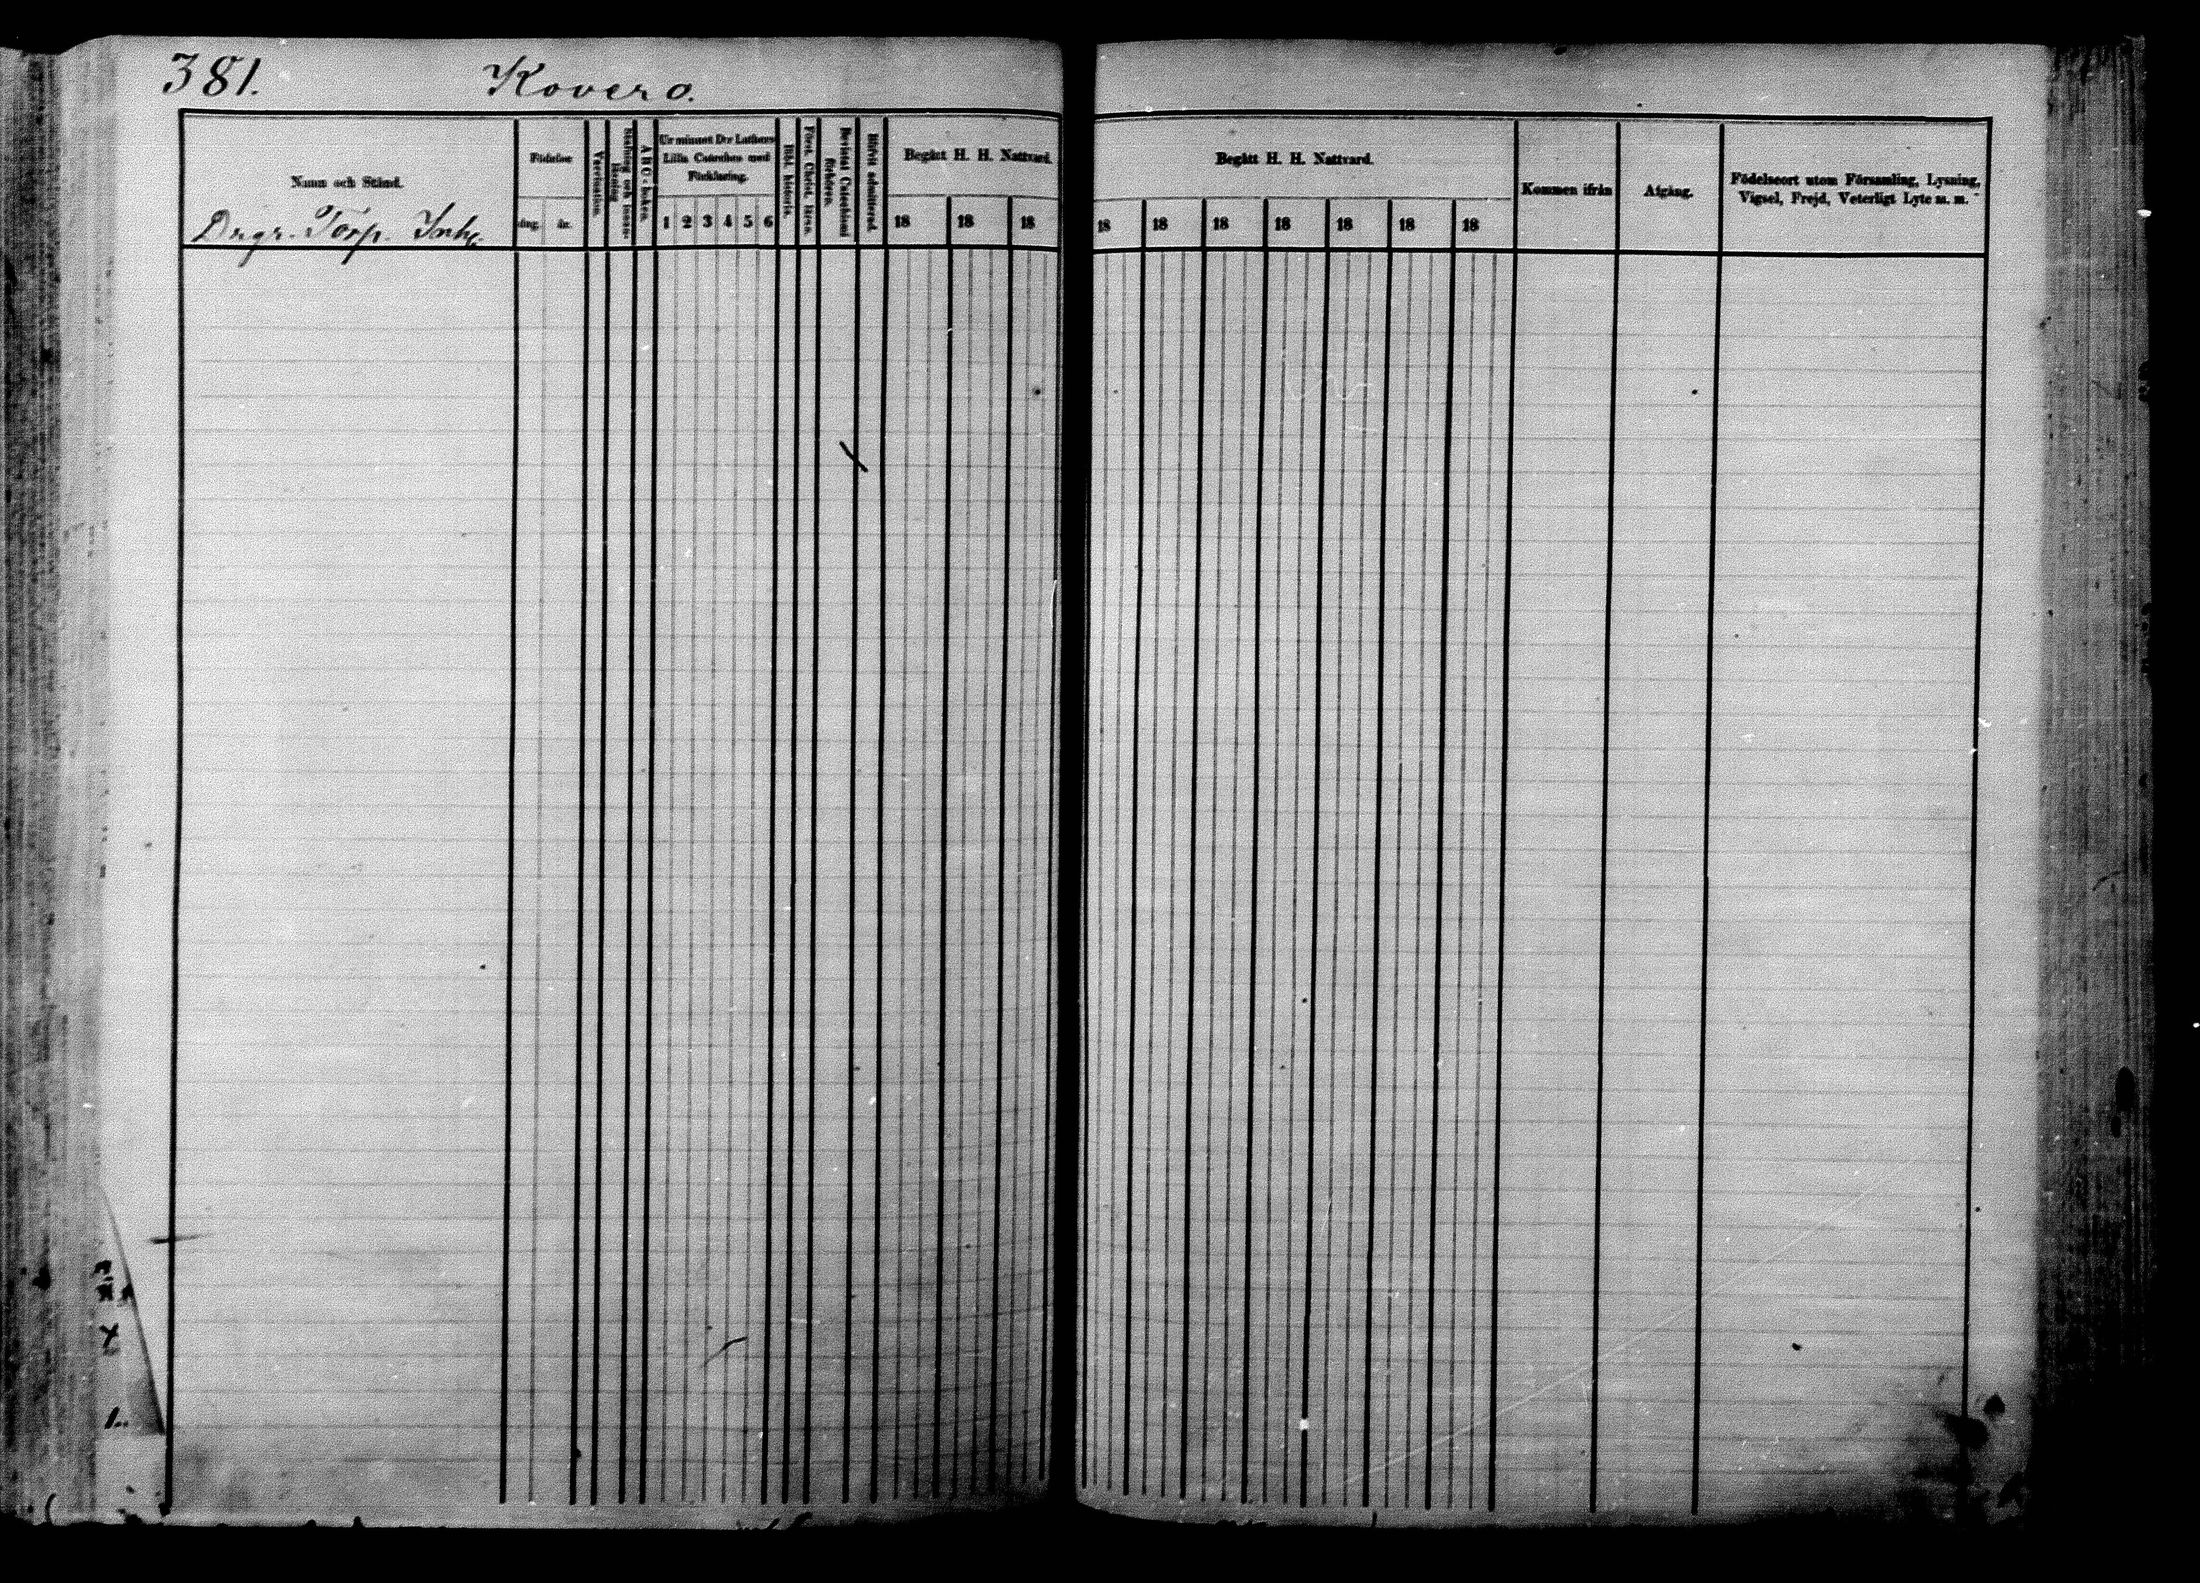 381. Kovero.
Namn och Stånd.
Drgr. Torp. Inh.
Födelse
dag. år.
Vaccination.
Stafning och innan-
läsning
A B C-boken.
Ur minnet Dr Luthers
Lilla Cateches med
Förklaring.
1 2 3 4 5 6
Bibl. historia.
Först. Christ. läran.
Bevistat Catechismi
förhören.
Blifvit admitterad.
Begått H. H. Nattvard.
18 18 18
Begått H. H. Nattvard.
18 18 18 18 18 18 18
Kommen ifrån
Afgång.
Födelseort utom Församling, Lysning,
Vigsel, Frejd, Veterligt Lyte m. m.